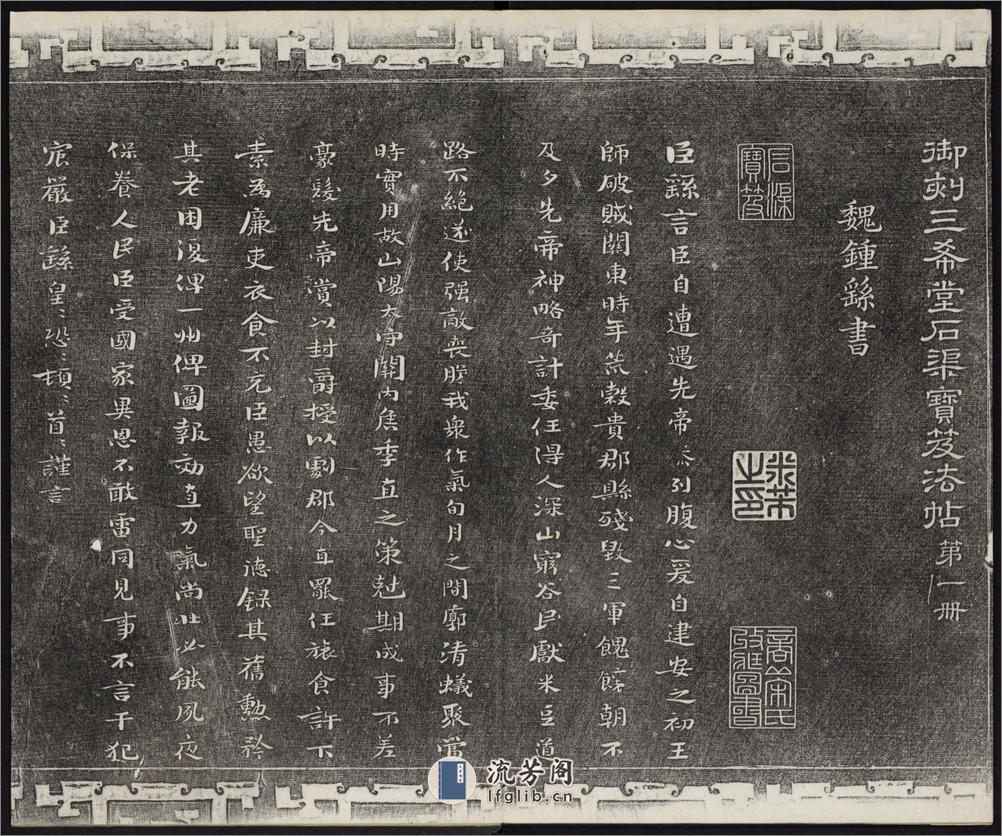 御刻三希堂石渠寶笈法帖第一冊
魏鍾繇書
石渠寶笈
米芾之印
臣繇言臣自遭遇先帝忝列腹心爰自建安之初王
師破賊關東時年荒穀貴郡縣殘毀三軍餽饟朝不
及夕先帝神略奇計委任得人深山窮谷民獻米豆道
路不絕遂使强敵喪膽我衆作氣旬月之間廓清蟻聚當
時實用故山陽太守關內侯季直之策尅期成事不差
豪髮先帝賞以封爵授以劇郡今直罷任旅食許下
素爲廉吏衣食不充臣愚欲望聖德錄其舊勳矜
其老困復俾一州俾圖報効直力氣尚壯必能夙夜
保養人民臣受國家異恩不敢雷同見事不言干犯
宸嚴臣繇皇〻恐〻頓〻首〻謹言
流芳阁
lfglib.cn